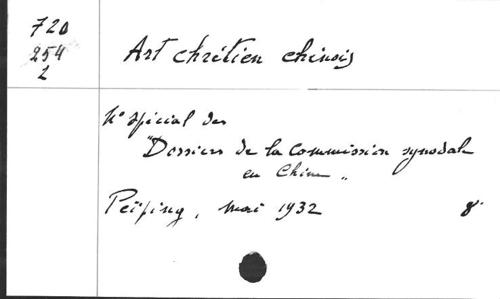 720
254
2
Art chrétien chinois
N° spécial des
"Dossiers de la Commission synodale
en Chine "
Peiping, mai 1932 8°